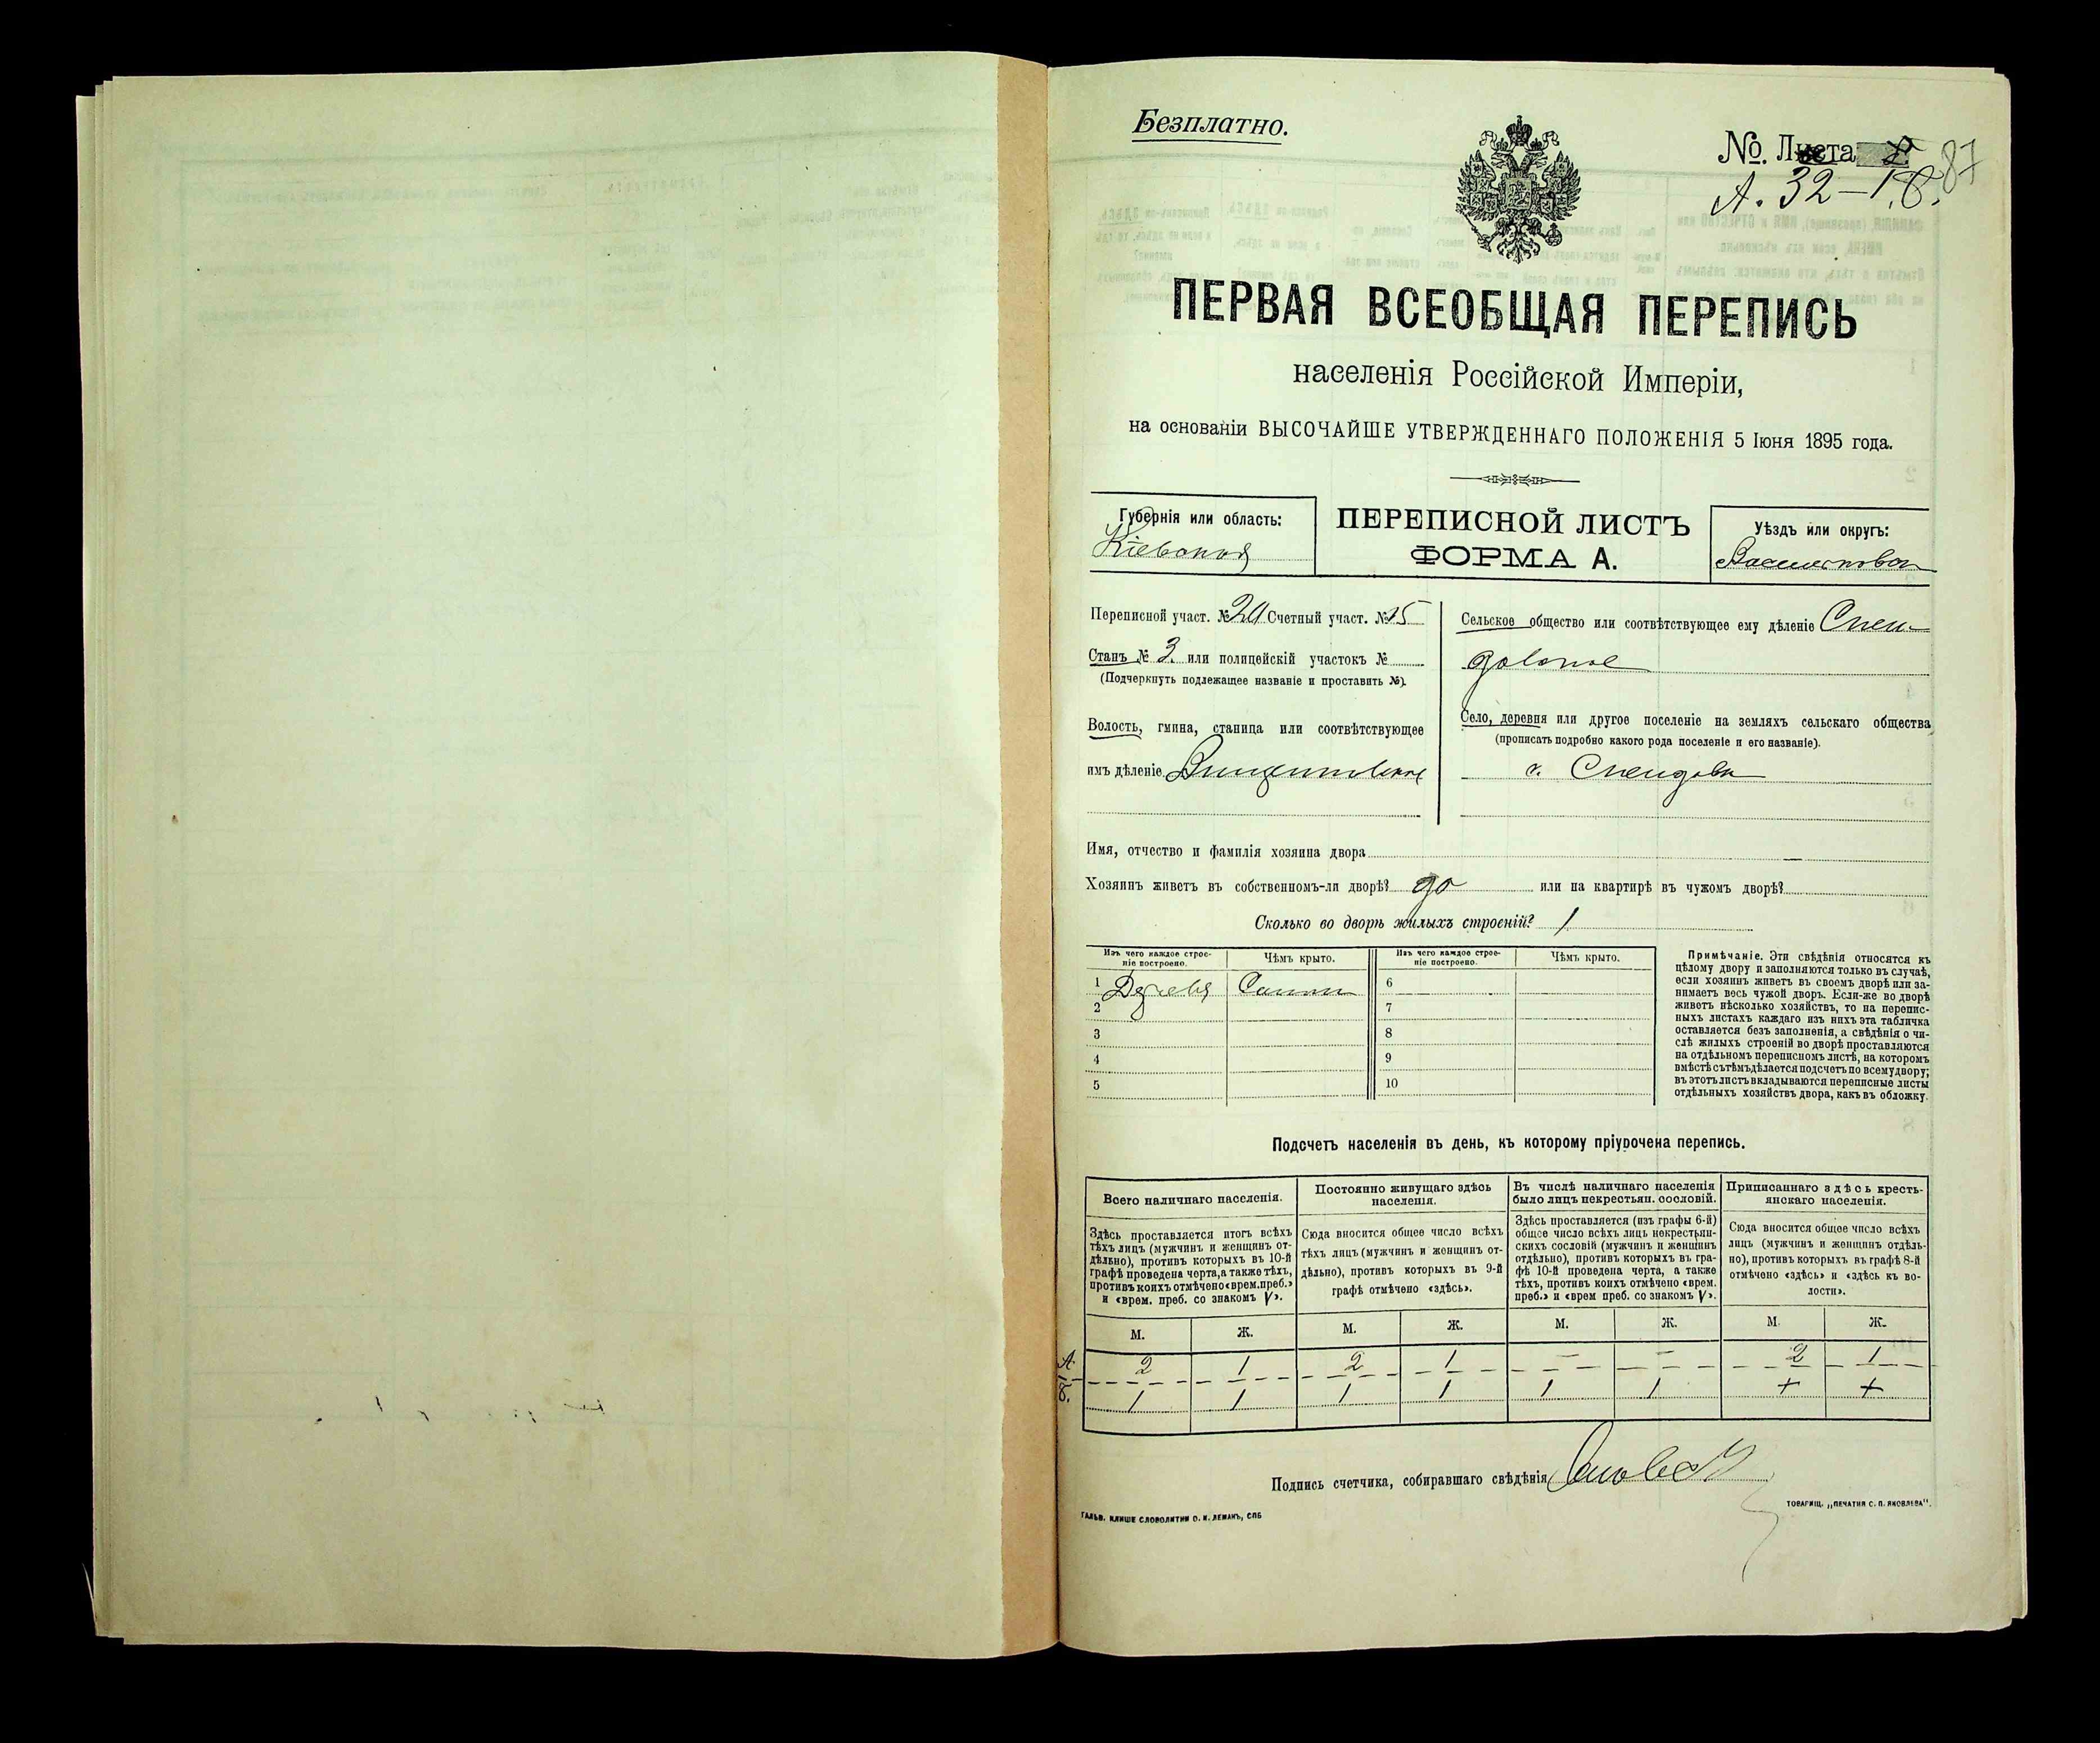 Безплатно.
№. Листа
А. 32 – 1 Б. 87
ПЕРВАЯ ВСЕОБЩАЯ ПЕРЕПИСЬ
населенія Россійской Имперіи,
на основаніи ВЫСОЧАЙШЕ УТВЕРЖДЕННАГО ПОЛОЖЕНІЯ 5 Іюня 1895 года.
Губернія или область:
Кіевская
ПЕРЕПИСНОЙ ЛИСТЪ
ФОРМА А.
Уѣздъ или округъ:
Васильковск
Переписной участ. № Счетный участ. № 15
Станъ № 3 или полицейскій участокъ №
(Подчеркнуть подлежащее названіе и проставить №).
Волость, гмина, станица или соотвѣтствующее
имъ дѣленіе
Сельское общество или соотвѣтствующее ему дѣленіе Спен-
довское
Село, деревня или другое поселеніе на земляхъ сельскаго общества
(прописать подробно какого рода поселеніе и его названіе).
с. Спендовка
Имя, отчество и фамилія хозяина двора
Хозяинъ живетъ въ собственномъ-ли дворѣ? да или на квартирѣ въ чужомъ дворѣ?
Сколько во дворѣ жилыхъ строеній? 1
Изъ чего каждое строе-
ніе построено.
Чѣмъ крыто.
Изъ чего каждое строе-
ніе построено.
Чѣмъ крыто.
1 Дерева Солом 6
2 7
3 8
4 9
5 10
Примѣчаніе. Эти свѣдѣнія относятся къ
цѣлому двору и заполняются только въ случаѣ,
если хозяинъ живетъ въ своемъ дворѣ или за-
нимаетъ весь чужой дворъ. Если-же во дворѣ
живетъ нѣсколько хозяйствъ, то на перепис-
ныхъ листахъ каждаго изъ нихъ эта табличка
оставляется безъ заполненія, а свѣдѣнія о чи-
слѣ жилыхъ строеній во дворѣ проставляются
на отдѣльномъ переписномъ листѣ, на которомъ
вмѣстѣ съ тѣмъ дѣлается подсчетъ по всему двору;
въ этотъ листъ вкладываются переписные листы
отдѣльныхъ хозяйствъ двора, какъ въ обложку.
Подсчетъ населенія въ день, къ которому пріурочена перепись.
Всего наличнаго населенія.
Здѣсь проставляется итогъ всѣхъ
тѣхъ лицъ (мужчинъ и женщинъ от-
дѣльно), противъ которыхъ въ 10-й
графѣ проведена черта, а также тѣхъ,
противъ коихъ отмѣчено «врем. преб.»
и «врем. преб. со знакомъ V».
Постоянно живущаго здѣсь
населенія.
Сюда вносится общее число всѣхъ
тѣхъ лицъ (мужчинъ и женщинъ от-
дѣльно), противъ которыхъ въ 9-й
графѣ отмѣчено «здѣсь».
Въ числѣ наличнаго населенія
было лицъ некрестьян. сословій.
Здѣсь проставляется (изъ графы 6-й)
общее число всѣхъ лицъ некрестьян-
скихъ сословій (мужчинъ и женщинъ
отдѣльно), противъ которыхъ въ гра-
фѣ 10-й проведена черта, а также
тѣхъ, противъ коихъ отмѣчено «врем.
преб.» и «врем преб. со знакомъ V».
Приписаннаго здѣсь кресть-
янскаго населенія.
Сюда вносится общее число всѣхъ
лицъ (мужчинъ и женщинъ отдѣль-
но), противъ которыхъ въ графѣ 8-й
отмѣчено «здѣсь» и «здѣсь къ во-
лости».
М. Ж. М. Ж. М. Ж. М. Ж.
А. 2 1 2 1 – – 2 1
Б. 1 1 1 1 1 1 + +
Подпись счетчика, собиравшаго свѣдѣнія
ГАЛЬВ. КЛИШЕ СЛОВОЛИТНИ О. И. ЛЕМАНЪ, СПБ
ТОВАРИЩ. „ПЕЧАТНЯ С. П. ЯКОВЛЕВА".